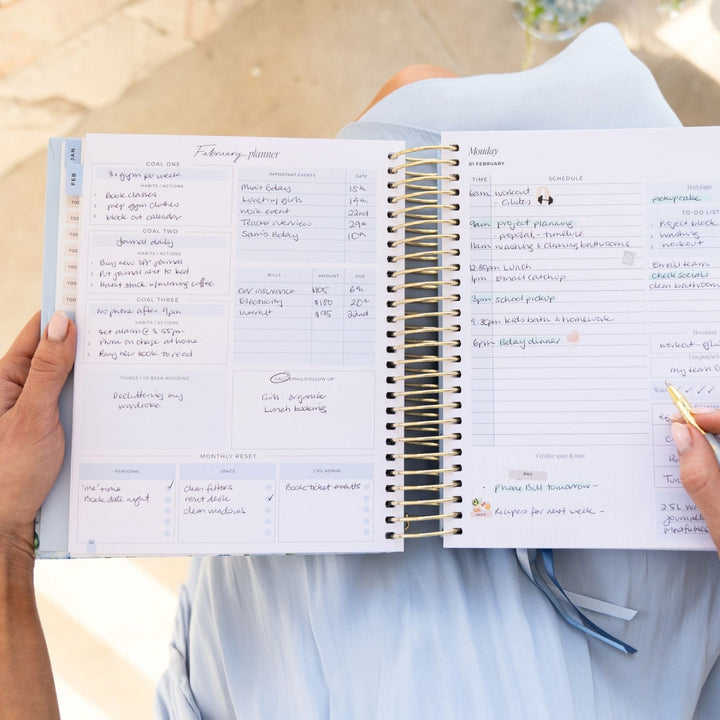 JAN
FEB
February planner
GOAL ONE
3x gym per week
HABITS / ACTIONS
1 Book classes
2 prep gym clothes
3 block out calendar
GOAL TWO
Journal daily
HABITS / ACTIONS
1 Buy new SPP journal
2 Put journal next to bed
3 Habit stack w/ morning coffee
GOAL THREE
No phone after 9pm
HABITS / ACTIONS
1 Set alarm @ 8:55pm
2 Phone on charge at home
3 Buy new book to read
THINGS I'VE BEEN AVOIDING
Decluttering my
wardrobe
IMPORTANT EVENTS DATE
Mia's Bday 15th
Lunch w/ girls 14th
work event 22nd
Teacher interview 29th
Sam's Bday 10th
BILLS AMOUNT DUE
car insurance $105 6th
Electricity $180 20th
Internet $95 22nd
CALL/EMAIL/FOLLOW UP
Girls - organise
Lunch booking
MONTHLY RESET
PERSONAL
'me' time
Book date night
SPACE
clean filters
reset desk
clean windows
LIFE ADMIN
Book ticket events
Monday
01 FEBRUARY
TIME SCHEDULE
6am workout
- Glutes
9am project planning
- proposal + timeline
11am washing & cleaning bathrooms
12:30pm Lunch
1pm Email catchup
3pm school pickup
4:30pm kids bath & homework
6pm Bday dinner
Creative space & notes
PAY
- Phone Bill tomorrow -
Recipes for next week -
Don't forget
pickup cake
TO-DO LIST
Project block
washing
workout
Email team
check socials
clean bathroom
Movement
workout - glu
my team
2.5L wa
journal
mindful